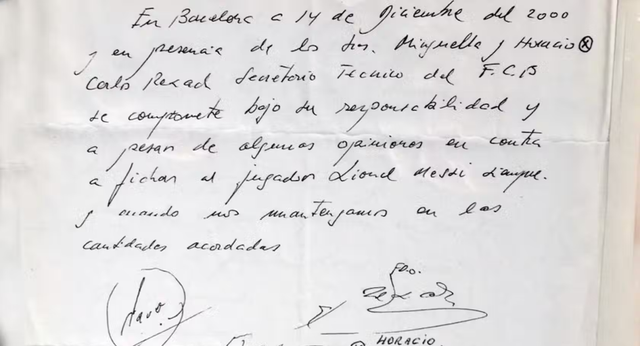 En Barcelona a 14 de Diciembre del 2000
y en presencia de los Srs. Minguella y Horacio ⓧ
Carlos Rexach Secretario Tecnico del F.C.B
se compromete bajo su responsabilidad y
a pesar de algunas opiniones en contra
a fichar al jugador Lionel Messi siempre.
y cuando nos mantengamos en las
cantidades acordadas
HORACIO